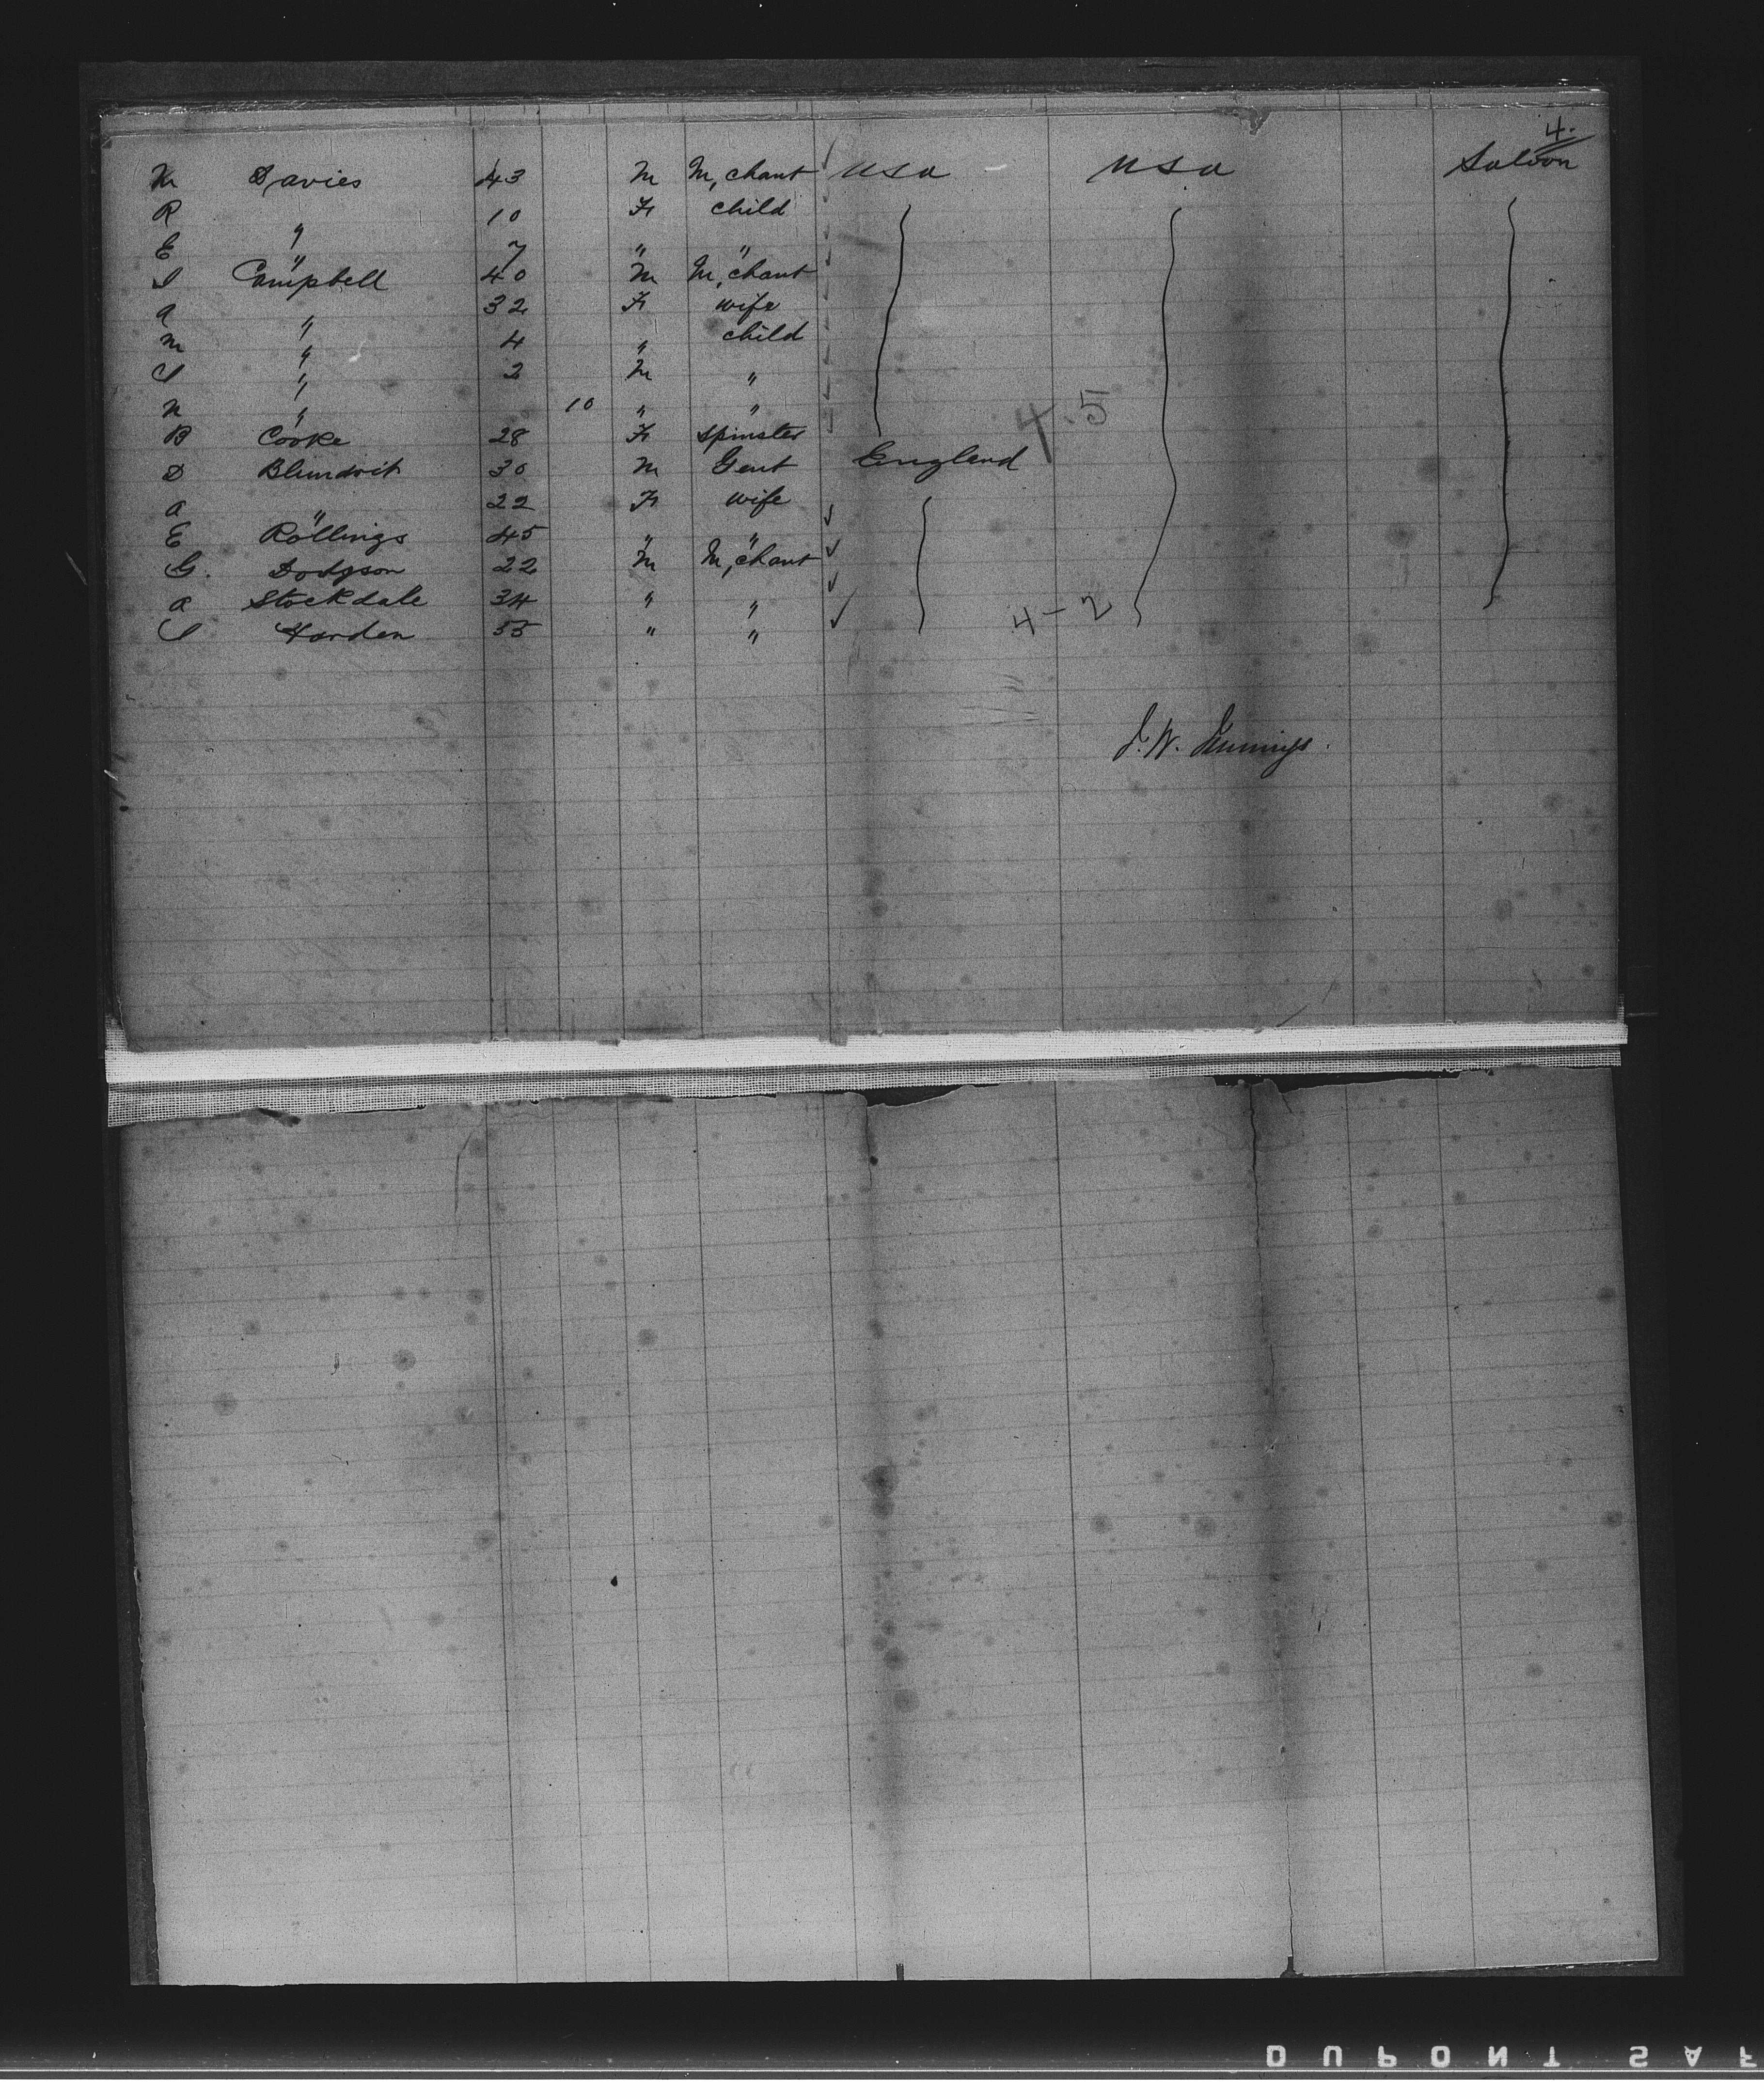 4.
M Davies 43 M M,chant USA USA Saloon
R " 10 F child
E " 7 " "
I Campbell 40 M M,chant
A " 32 F wife
M " 4 " child
" 2 M "
N " 10 " "
B Cooke 28 F Spinster
D 30 M Gent England
A " 22 F wife
E Rollings 45 " "
G. Dodgson 22 M M,chant
A Stockdale 34 " "
Harden 55 " "
4.5
4-2
J. W. Jennings.
DUPONT SAF